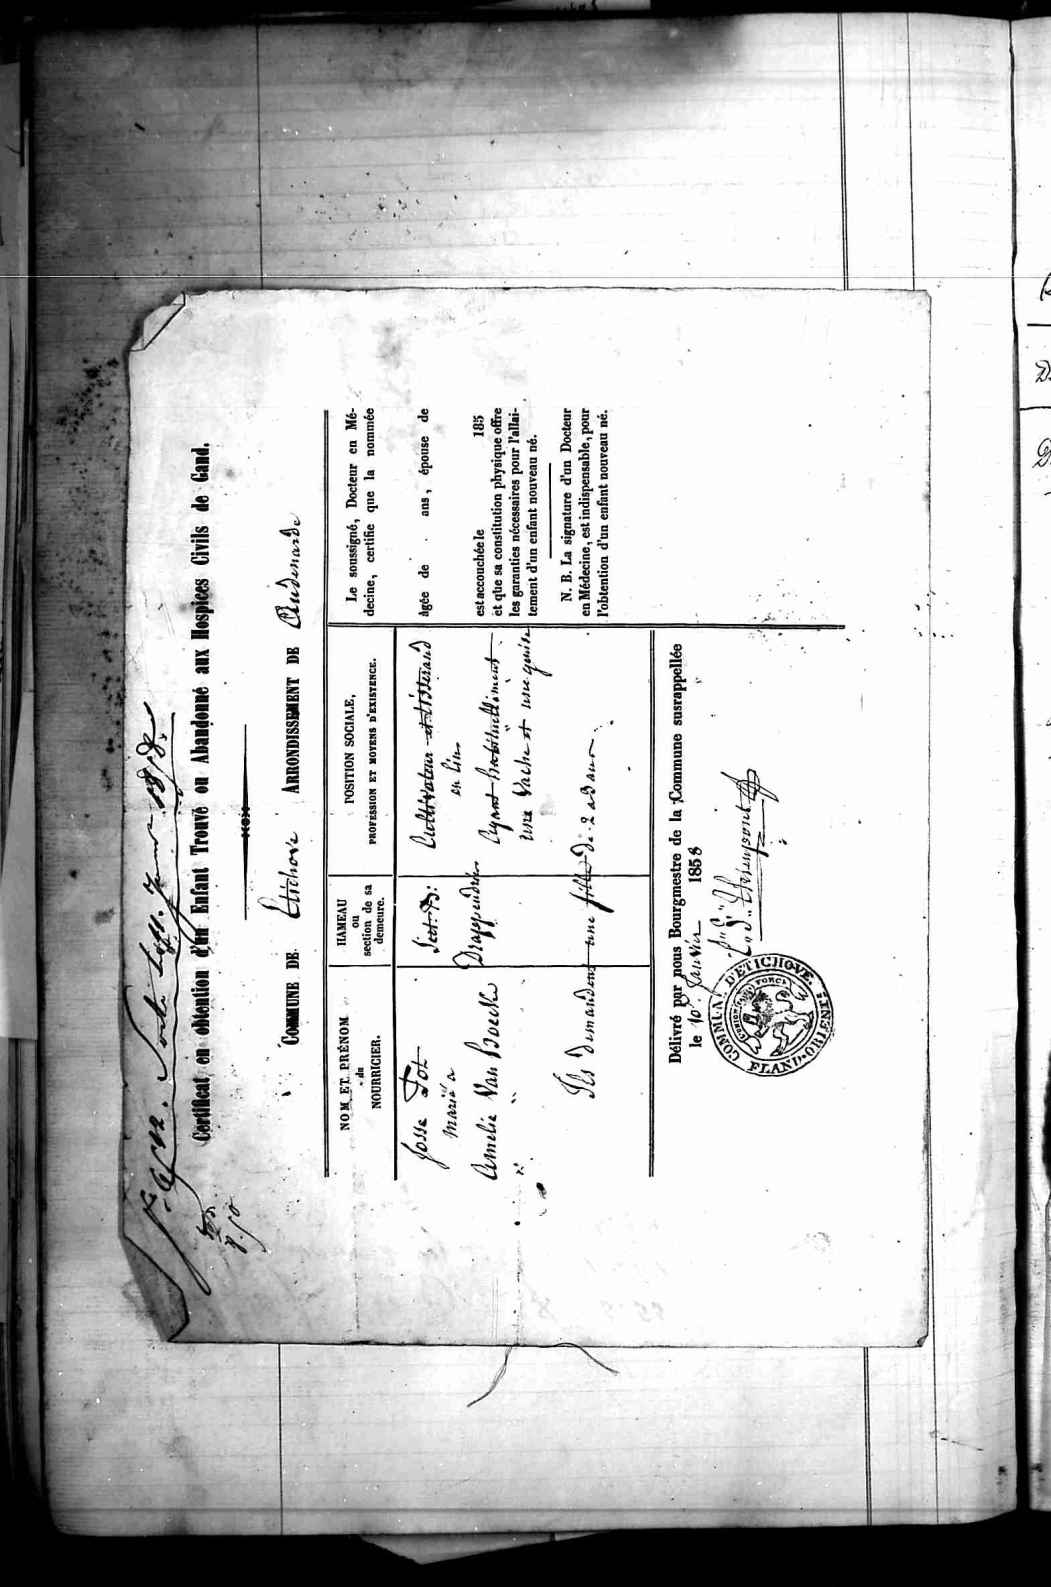 Certificat en obtention d'un Enfant Trouvé ou Abandonné aux Hospices Civils de Gand.
COMMUNE DE Etichove ARRONDISSEMENT DE Audenarde
NOM ET PRÉNOM
du
NOURRICIER.
Josse
marié a
Amelie Van Boecke
HAMEAU
ou
section de sa
demeure.
Sect. B:
POSITION SOCIALE,
PROFESSION ET MOYENS D'EXISTENCE.
Cultivateur et tisserand
en lin
Ayant habituellement
une vache et une genisse
Ils demandent une fille de 2 a 3 ans.
Le soussigné, Docteur en Mé-
decine, certifie que la nommée
âgée de ans, épouse de
est accouchée le 185
et que sa constitution physique offre
les garanties nécessaires pour l'allai-
tement d'un enfant nouveau né.
N. B. La signature d'un Docteur
en Médecine, est indispensable, pour
l'obtention d'un enfant nouveau né.
Délivré par nous Bourgmestre de la Commune susrappellée
le 10 Janvier 1858
COMMUN. D'ETICHOVE.
FLAND. ORIENT.